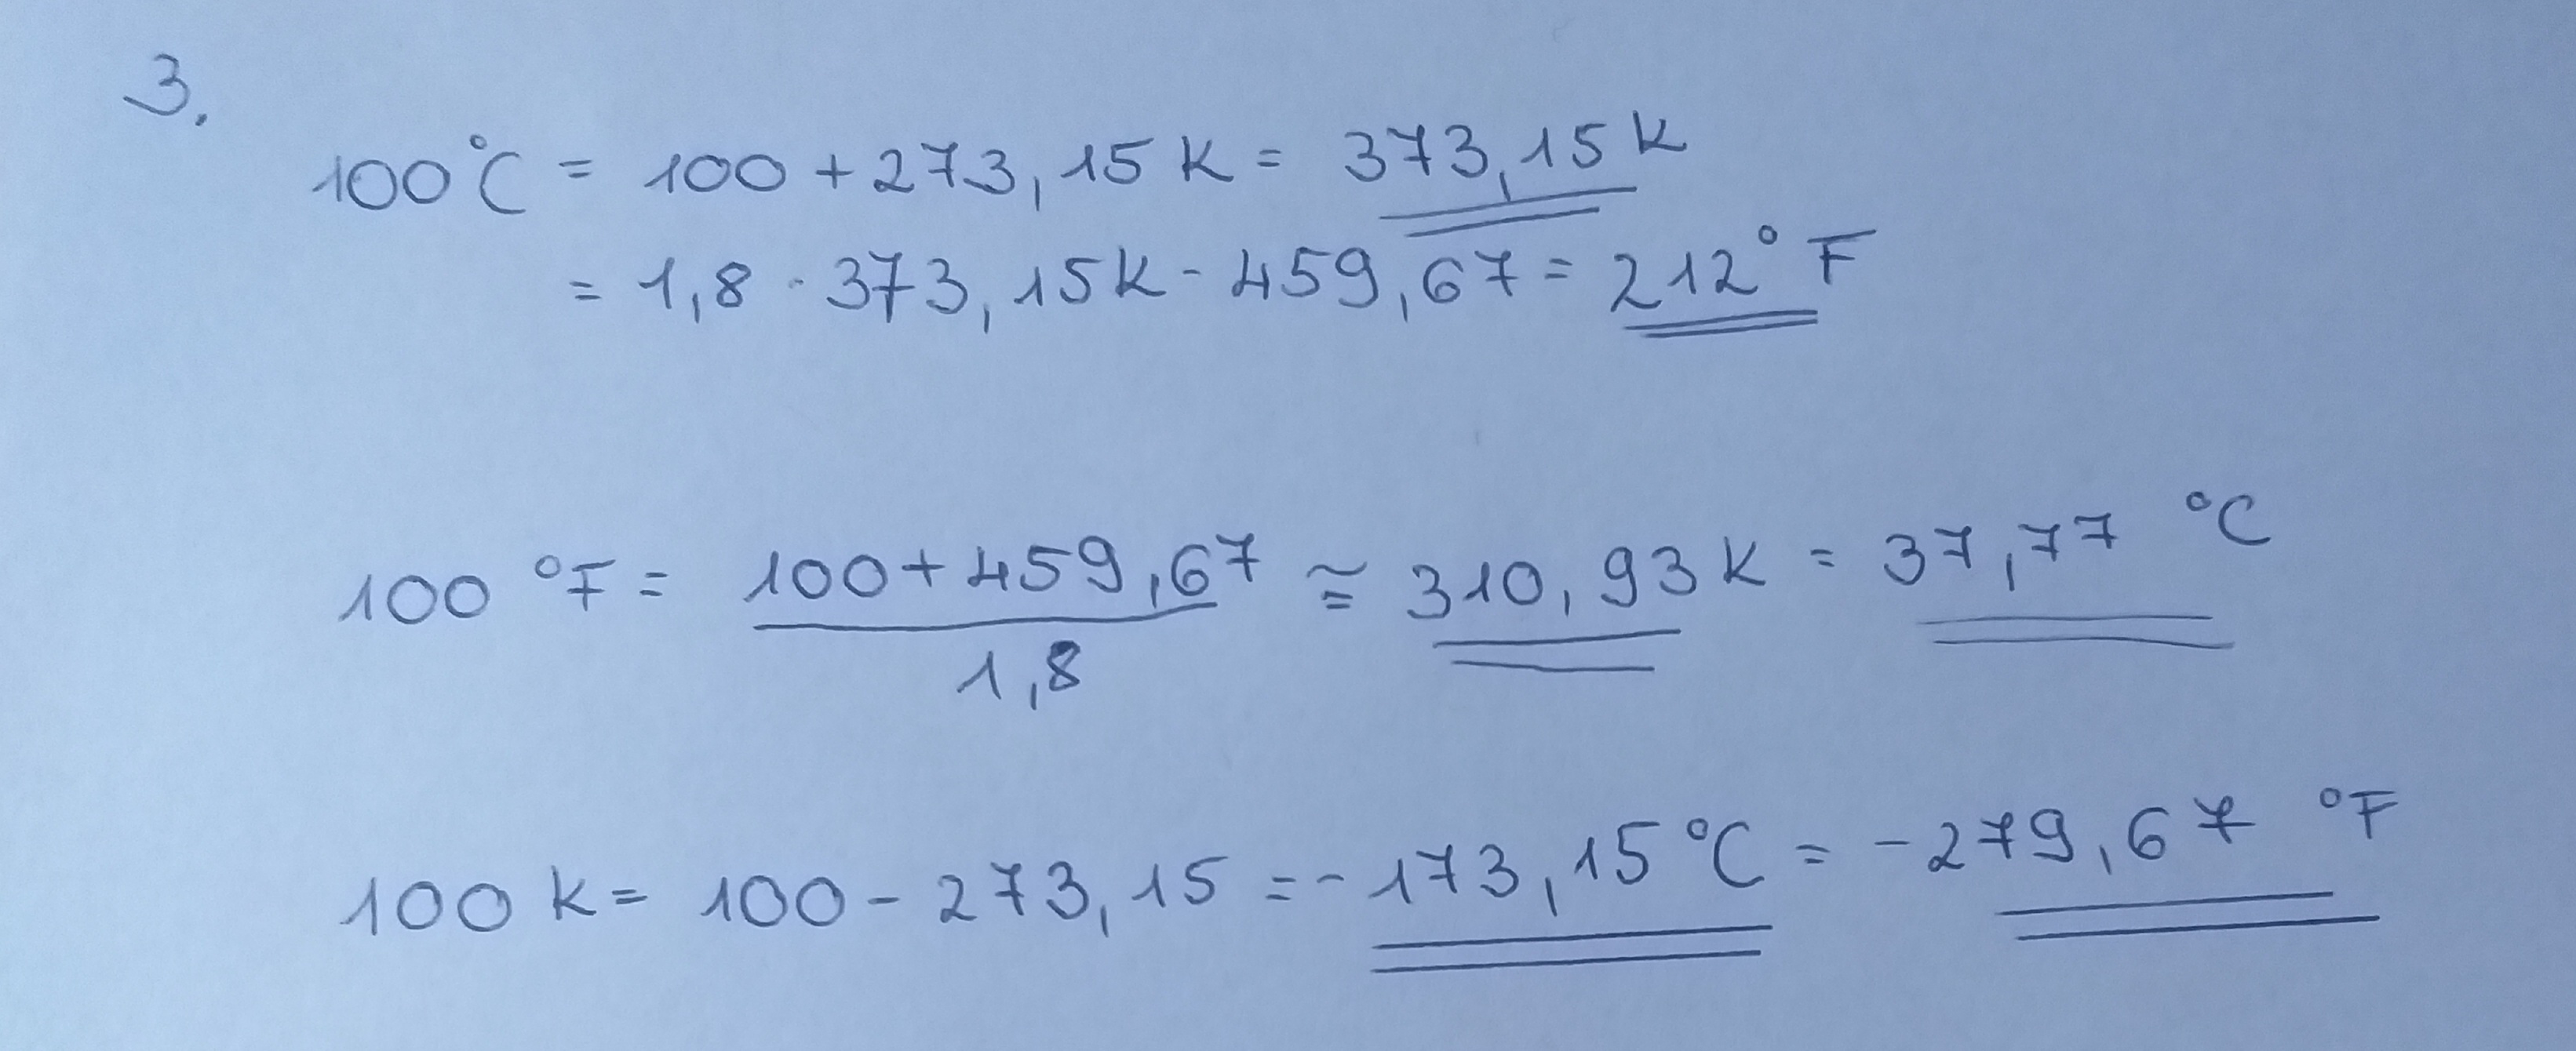 3.
100°C = 100 + 273,15 K = 373,15 K
= 1,8 · 373,15 K - 459,67 = 212° F
100 °F = 100 + 459,67 / 1,8 ≅ 310,93 K = 37,77 °C
100 K = 100 - 273,15 = - 173,15 °C = - 279,67 °F